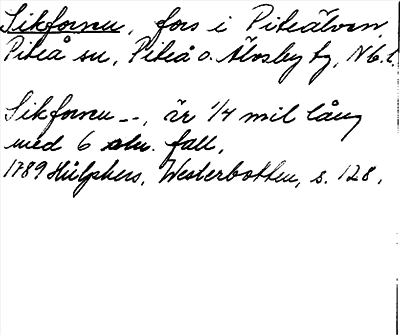 Sikforsen, fors i Piteälven,
Piteå sn, Piteå o. Älvsby tg, Nb.l.
Sikforsen --, är 1/4 mil lång
med 6 aln. fall,
1789 Hülphers, Westerbotten, s. 128.